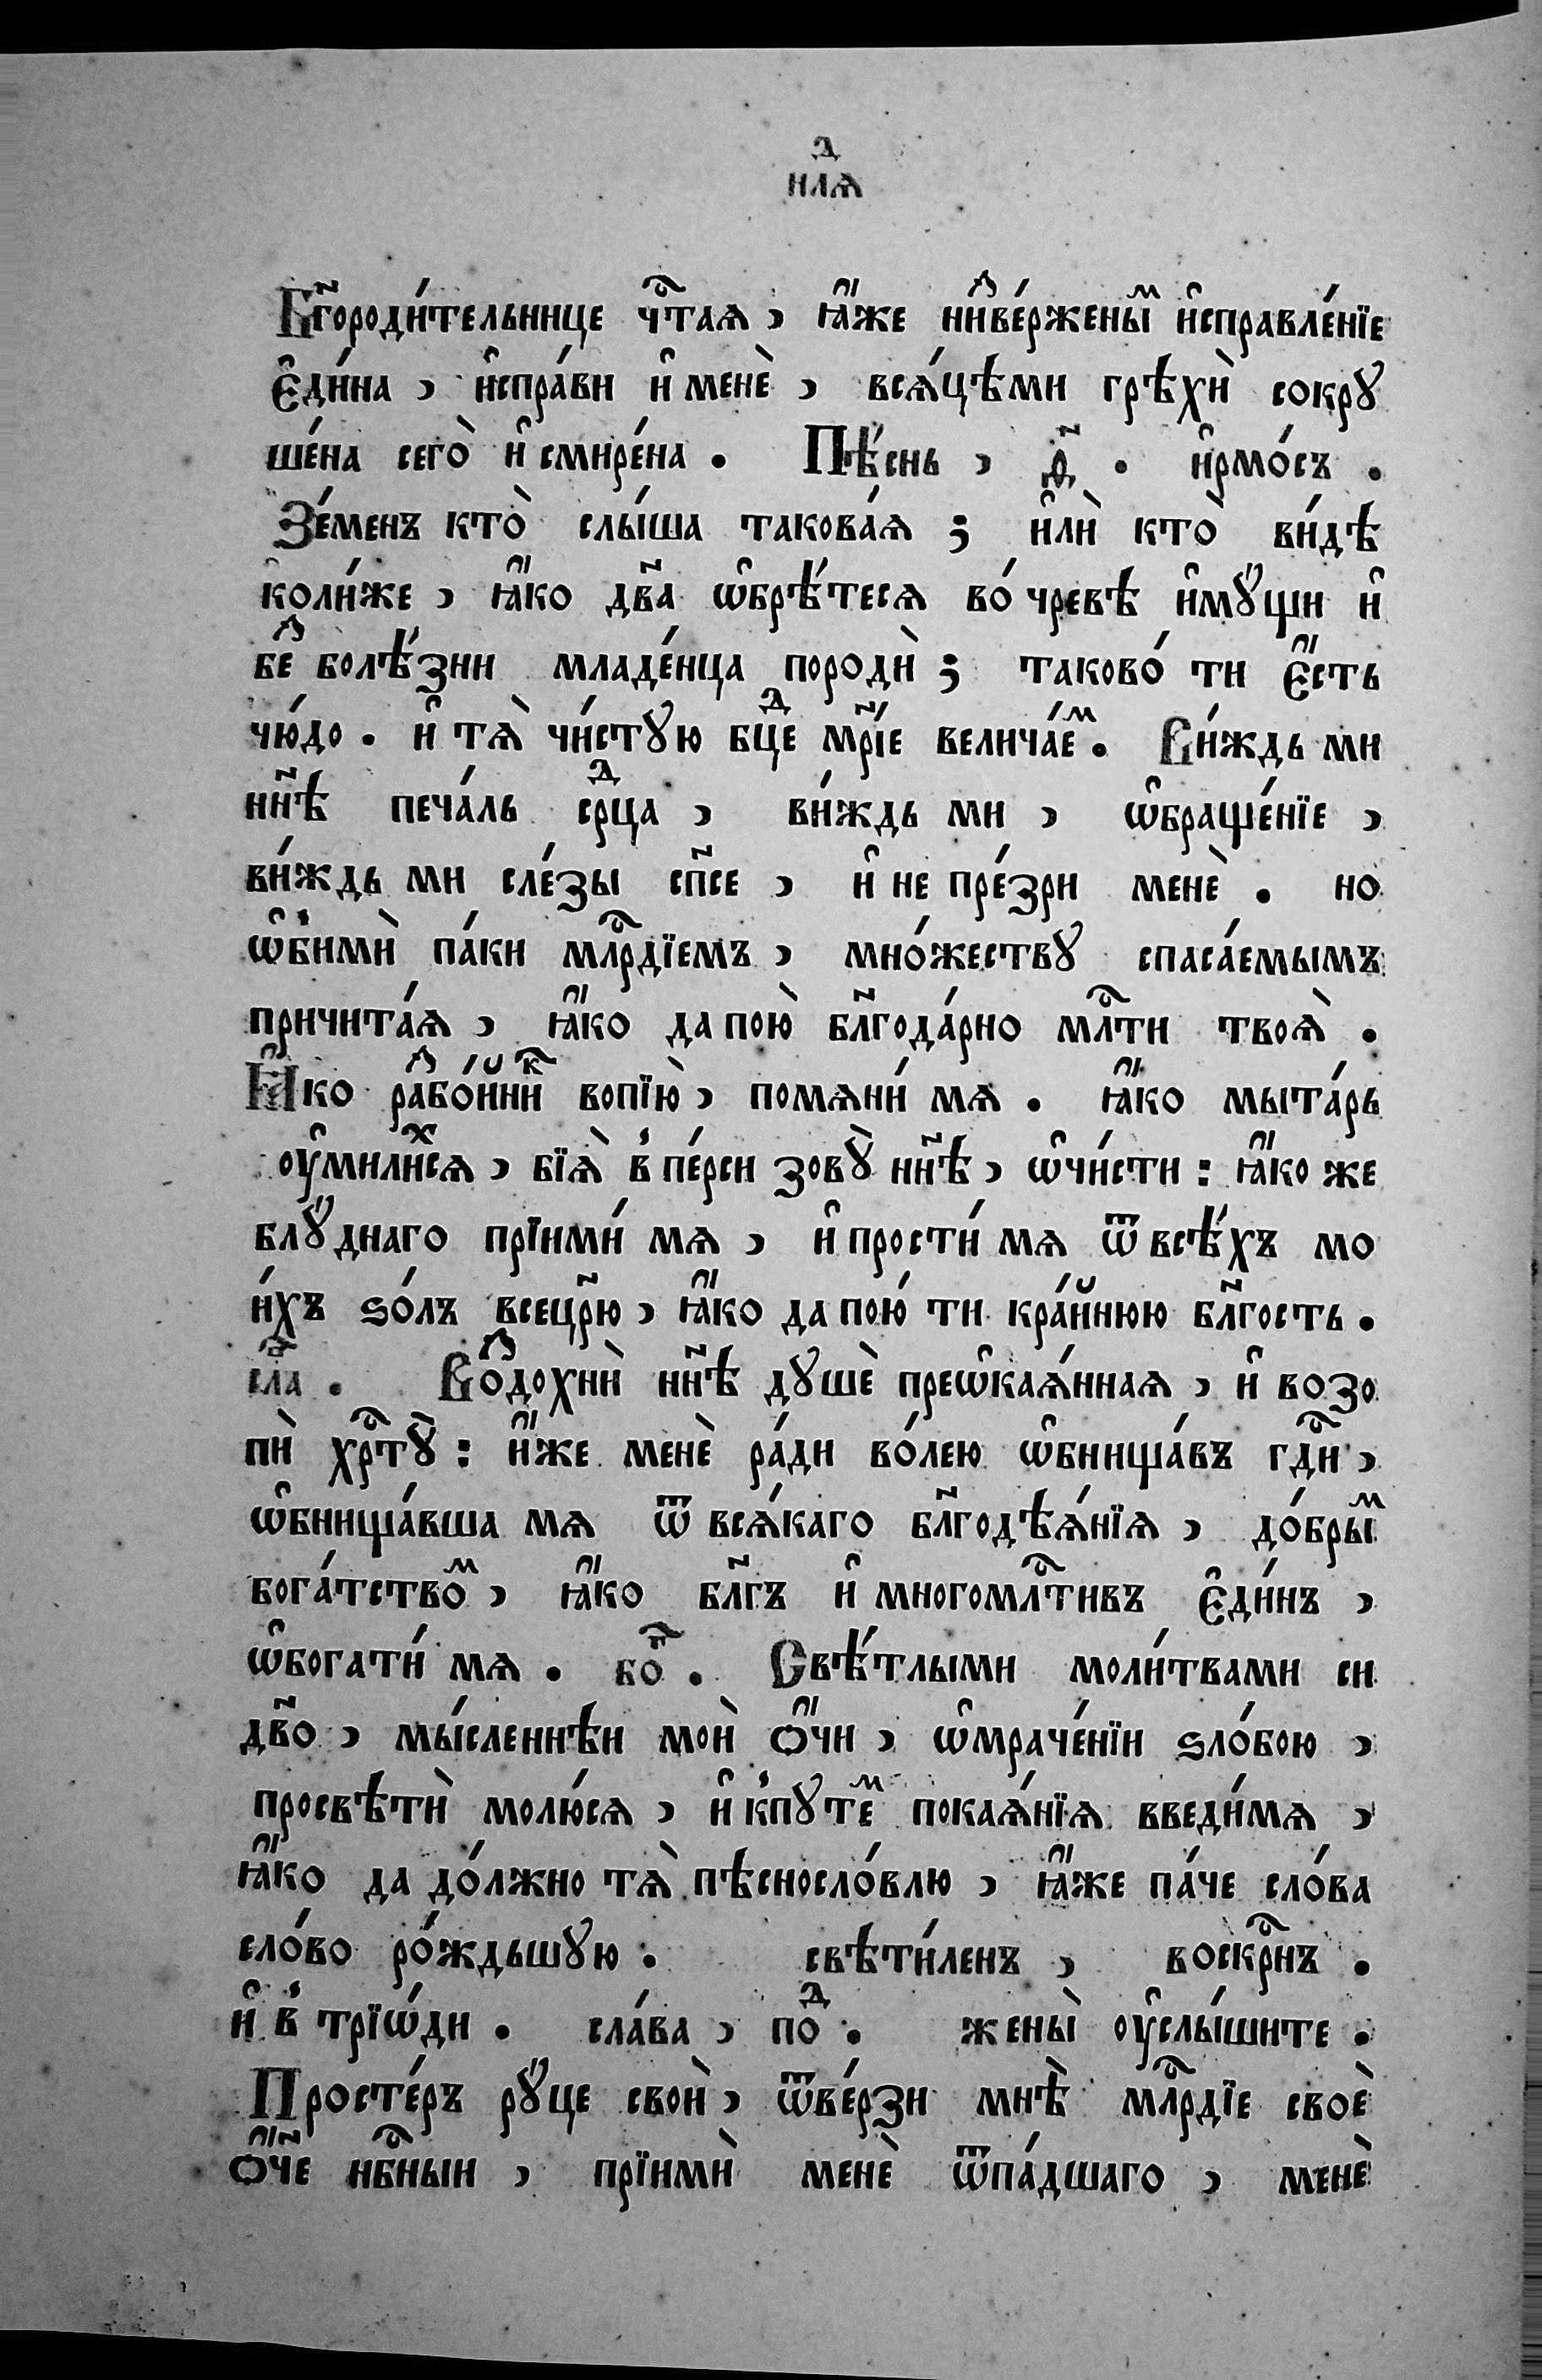 нлѧⷣ
Бг҃ороди́тельнице чⷭ҇таѧ , ꙗ҆́же ни́вⷥе́рженыⷨ и҆справле́нїе
є҆ди́на , и҆спра́ви и҆ менѐ , всѧ́цѣми грѣхѝ сокрꙋ
ше́на сего̀ и҆ смире́на . Пѣ́снь , ѳ҃ . і҆рмо́съ .
Зе́менъ кто̀ слы́ша такова́ѧ ; и҆лѝ кто̀ ви́дѣ
коли́же , ꙗ҆́ко дв҃а ѡ҆брѣ́тесѧ во́ чревѣ и҆мꙋ́щи и҆
беⷥ болѣ́зни младе́нца породѝ ; таково́ ти є҆́сть
чю́до . и҆ тѧ̀ чи́стꙋю бцⷣе мр҃і́е велича́еⷨ . Ви́ждь ми
нн҃ѣ печа́ль срⷣца , ви́ждь ми , ѡ҆браще́нїе ,
ви́ждь ми сле́зы сп҃се , и҆ не пре́зри менѐ . но
ѡ҆б̾имѝ па́ки млⷭ҇рдїемъ , мно́жествꙋ спаса́емымъ
причита́ѧ , ꙗ҆́ко да пою̀ бл҃года́рно млⷭ҇ти твоѧ̀ .
Ꙗ҆́ко раⷥбо́йниⷦ҇ вопїю̀ , помѧни́ мѧ . ꙗ҆́ко мыта́рь
ᲂу҆милиⷯсѧ , бїѧ̀ в̾ пе́рси зовꙋ̀ нн҃ѣ , ѡ҆чи́сти : ꙗ҆́ко же
блꙋ́днаго прїими́ мѧ , и҆ прости́ мѧ ѿ всѣ́хъ мо
и́хъ ѕо́лъ всецр҃ю , ꙗ҆́ко да пою́ ти кра́йнюю бл҃гость .
слаⷡ҇ . Воⷥдохнѝ нн҃ѣ дꙋшѐ преѡ҆каѧ́ннаѧ , и҆ возо
пѝ хрⷭ҇тꙋ̀ : и҆́же менѐ ра́ди во́лею ѡ҆бнища́въ гдⷭ҇и ,
ѡ҆бнища́вша мѧ ѿ всѧ́каго бл҃годѣѧ́нїѧ , до́брыⷨ
бога́тствоⷨ , ꙗ҆́ко бл҃гъ и҆ многомлⷭ҇тивъ є҆ди́нъ ,
ѡ҆богати́ мѧ . боⷢ҇ . Свѣ́тлыми моли́твами си
дв҃о , мы́сленнѣи моѝ ѻ҆́чи , ѡ҆мраче́нїи ѕло́бою ,
просвѣтѝ молю́сѧ , и҆ к̾пꙋтеⷨ покаѧ́нїѧ введи́мѧ ,
ꙗ҆́ко да до́лжно тѧ̀ пѣсносло́влю , ꙗ҆́же па́че сло́ва
сло́во ро́ждьшꙋю . свѣти́ленъ , воскрⷭ҇нъ .
и҆ в̾ трїѡ́ди . сла́ва , поⷣ . жены̀ ᲂу҆слы́шите .
Просте́ръ рꙋ́це своѝ , ѿве́рзи мнѣ̀ млⷭ҇рдїе своѐ
ѻ҆́ч҃е нбⷭ҇ныи , прїимѝ менѐ ѿпа́дшаго , менѐ